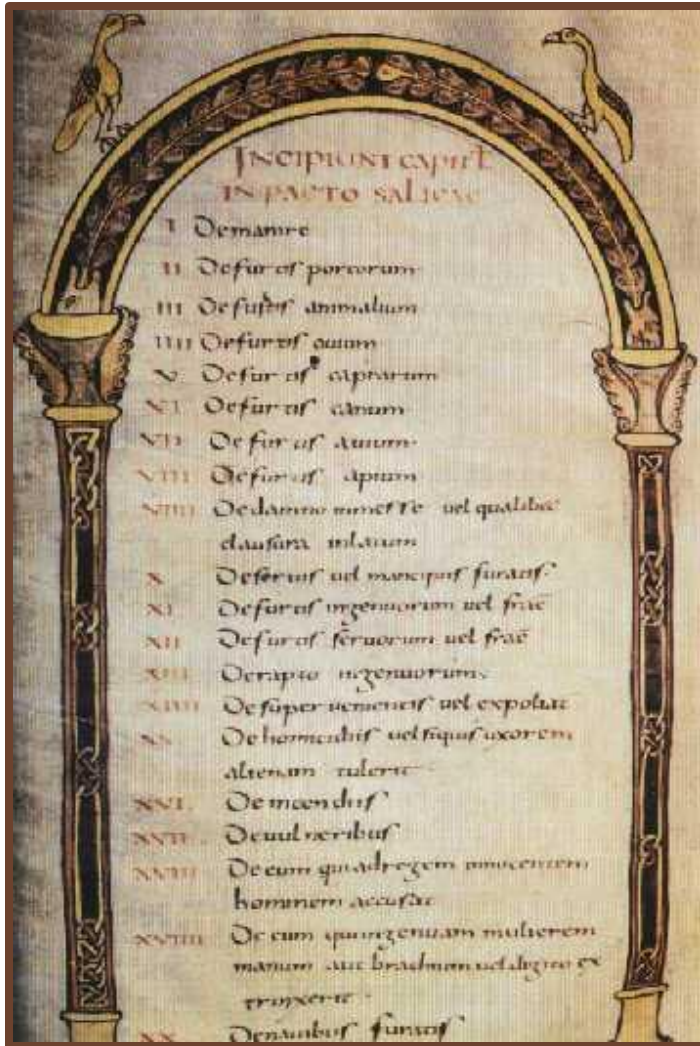 INCIPIUNT CAPIT̄
IN PACTO SALICAE
I De manire
II De furtis porcorum
III De furtis animalium
IIII De furtis ouium
V De furtis caprarum
VI De furtis canum
VII De furtis auium
VIII De furtis apium
VIIII De damno in messe uel qualibet
clausura inlatum
X De seruis uel mancipiis furatis
XI De furtis ingenuorum uel fraē
XII De furtis seruorum uel fraē
XIII De rapto ingenuorum
XIIII De superuenientis uel expoliat
XV De homicidiis uel siquis uxorem
alienam tulerit
XVI De incendiis
XVII De uulneribus
XVIII De eum qui ad regem innocentem
hominem accusat
XVIIII De eum qui ingenuam mulierem
manum aut brachium uel digito ex
trinxerit
XX De nauibus furatis